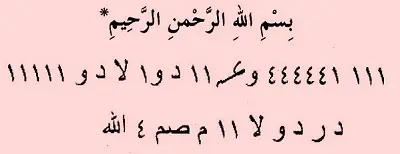 بِسْمِ اللهِ الرَّحْمنِ الرَّحِيمِ*
١١١ ٤٤٤٤٤٤١ وعـہ ١١ د و١ لا د و ١١١١١
د ر د و لا ١١ م صم ٤ الله